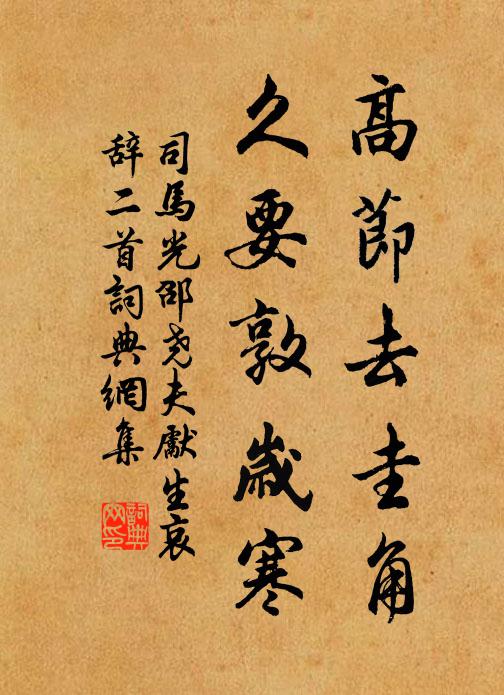 高節去圭角
久要敦歲寒
司馬光邵堯夫獻生哀
辭二首詞典網集
詞典
网印